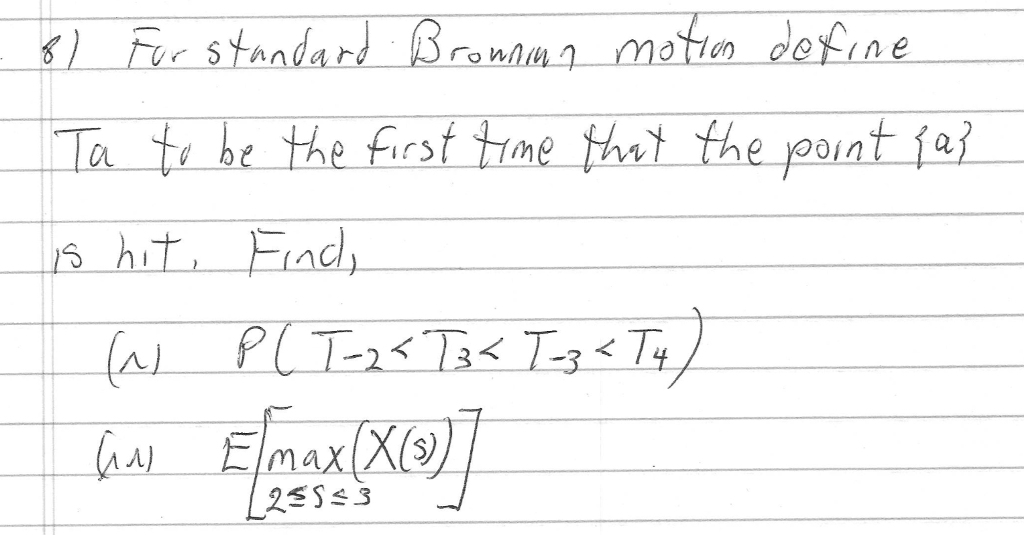 8) For standard Brownian motion define
Ta to be the first time that the point {a}
is hit. Find,
(i) P(T-2 < T3 < T-3 < T4)
(ii) E[max(X(s))]
2≤s≤3